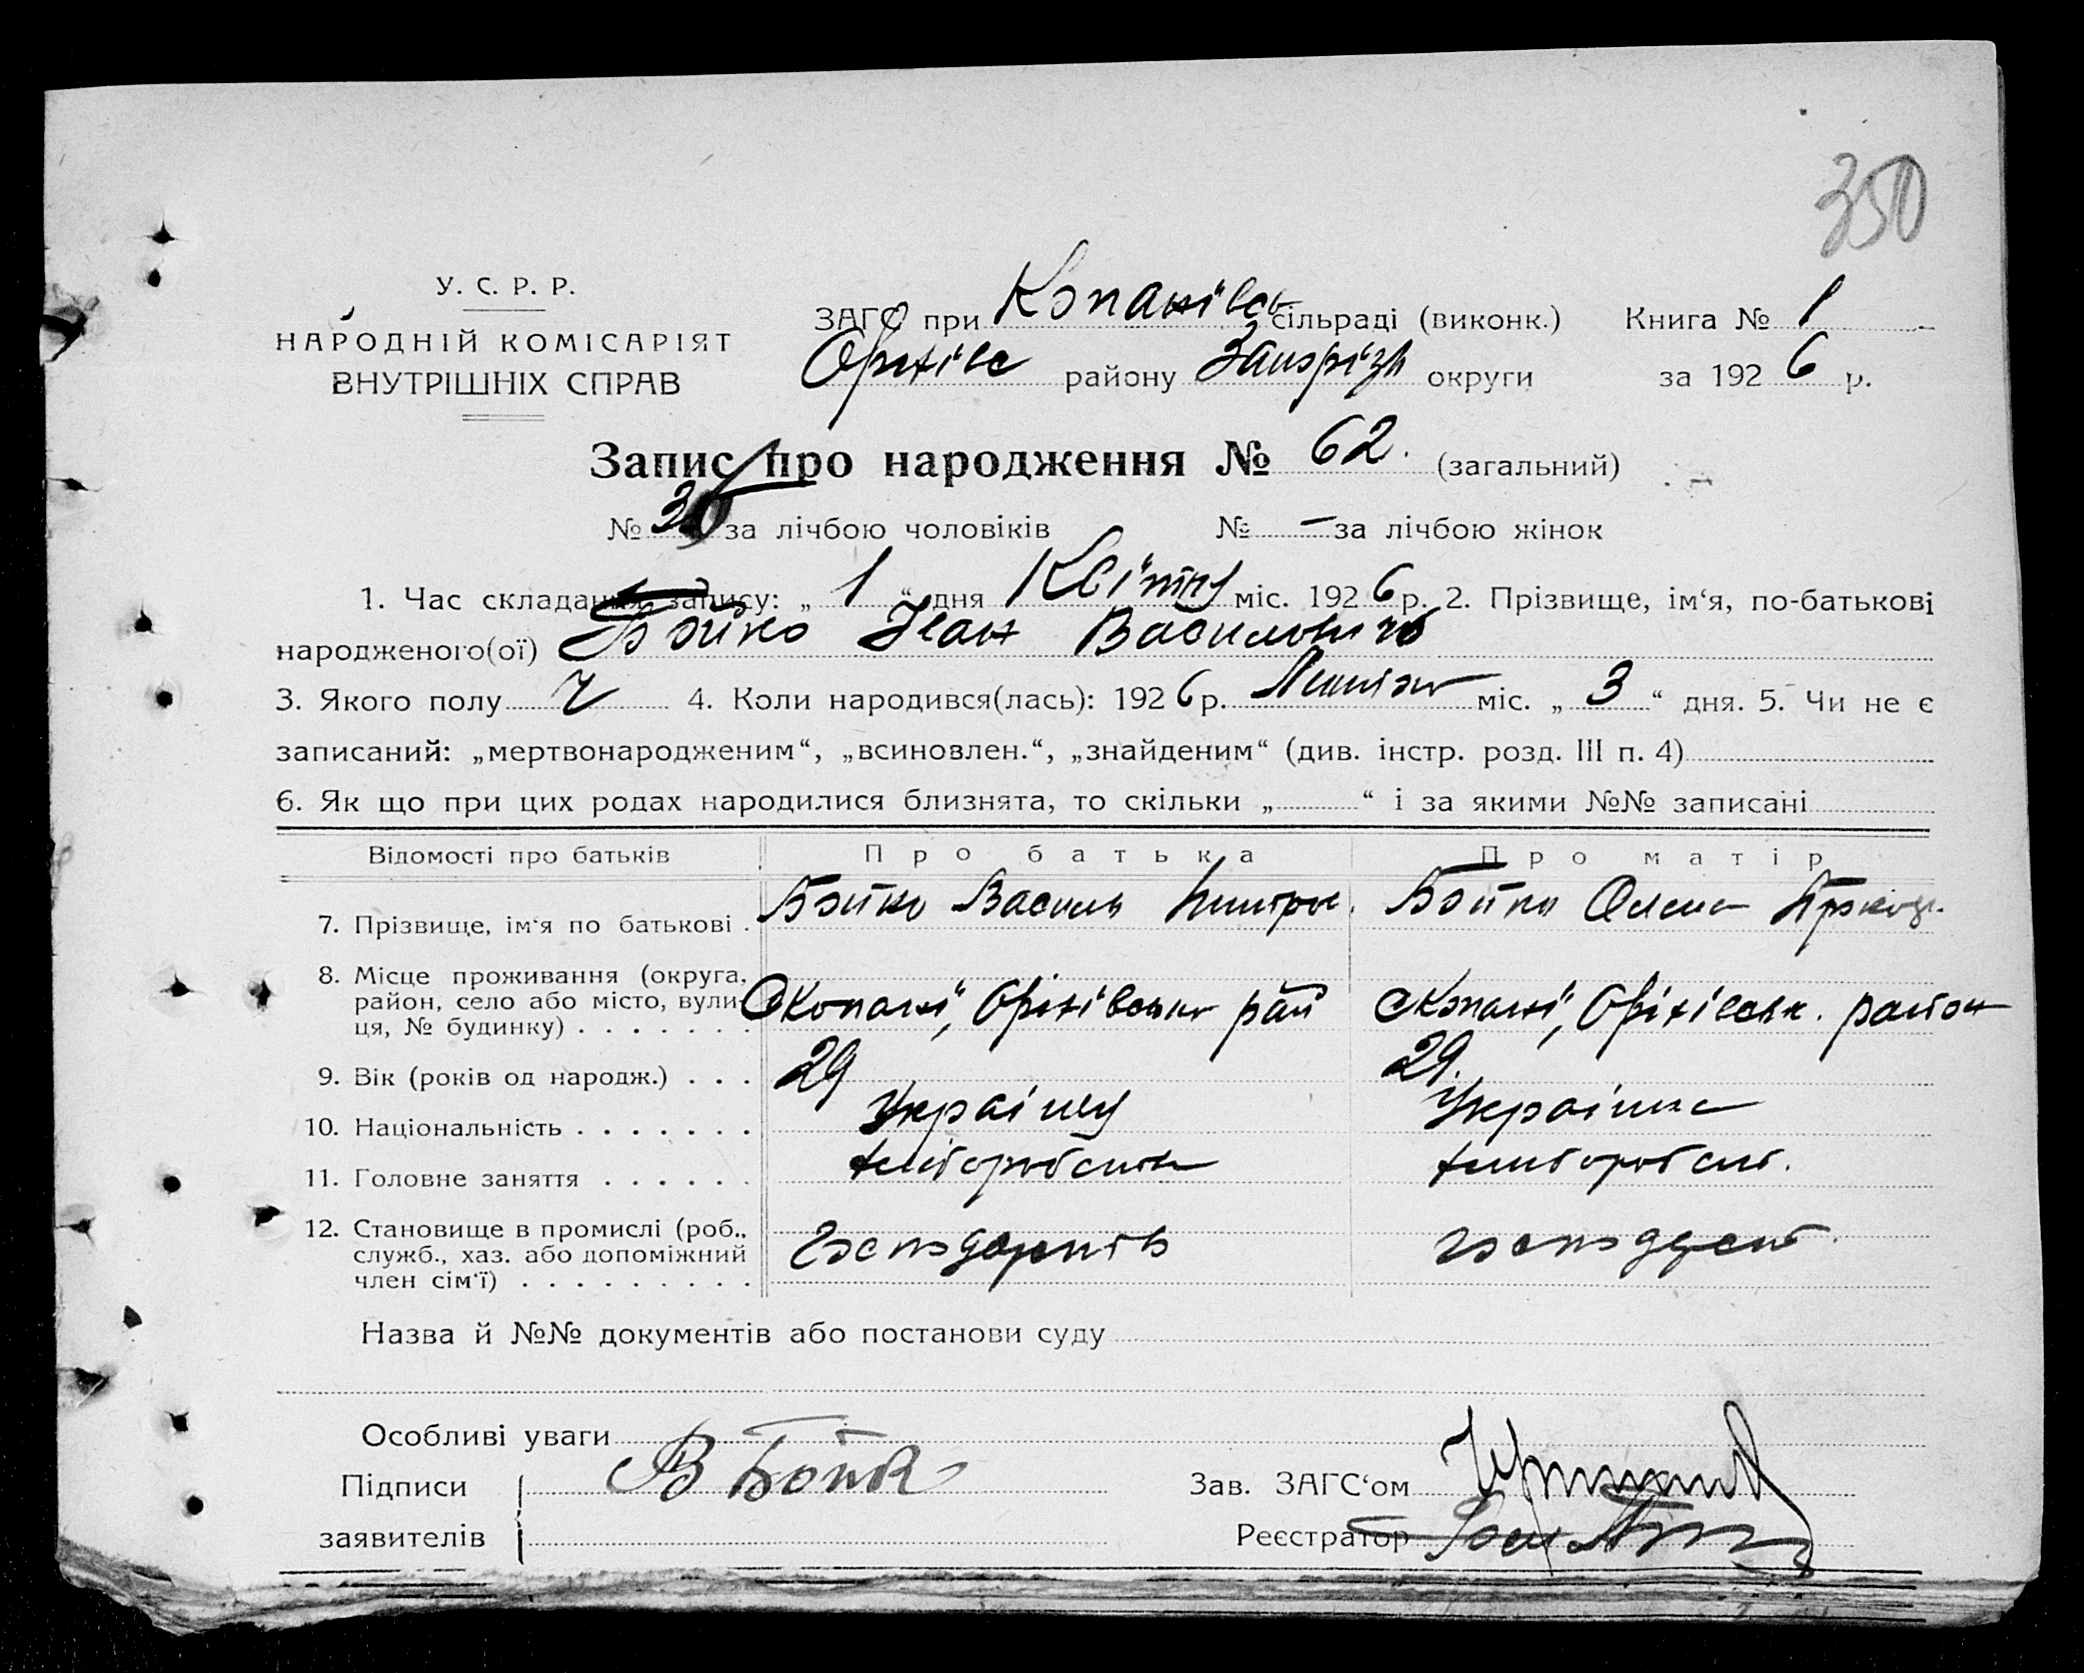 350
У. С. Р. Р.
НАРОДНІЙ КОМІСАРІЯТ
ВНУТРІШНІХ СПРАВ
ЗАГС при Копанівск сільраді (виконк.) Книга № 1
Оріхівс району Запорізьк округи за 1926 р.
Запис про народження № 62. (загальний)
№ за лічбою чоловіків № – за лічбою жінок
1. Час складання запису: „ 1 “ дня Квітня міс. 1926 р. 2. Прізвище, ім‘я, по-батькові
народженого(ої) Бойко Іван Васильович
3. Якого полу Ч 4. Коли народився(лась): 1926 р. міс. „ 3 “ дня. 5. Чи не є
записаний: „мертвонародженим“, „всиновлен.“, „знайденим“ (див. інстр. розд. III п. 4)
6. Як що при цих родах народилися близнята, то скільки „ “ і за якими №№ записані
Відомості про батьків Про батька Про матір
7. Прізвище, ім‘я по батькові . Бойко Василь Дмитров. Бойко Олена
8. Місце проживання (округа,
район, село або місто, вули-
ця, № будинку) . . . . . . . с Копані, Оріхівськ рай с Копані, Оріхівськ. район
9. Вік (років од народж.) . . . 29 29.
10. Національність . . . . . . . Українец Українка
11. Головне заняття . . . . . . хліборобство хліборобст.
12. Становище в промислі (роб.,
служб., хаз. або допоміжний
член сім‘ї) . . . . . . . . .
Назва й №№ документів або постанови суду
Особливі уваги
Підписи В Бойко Зав. ЗАГС‘ом
заявителів Реєстратор